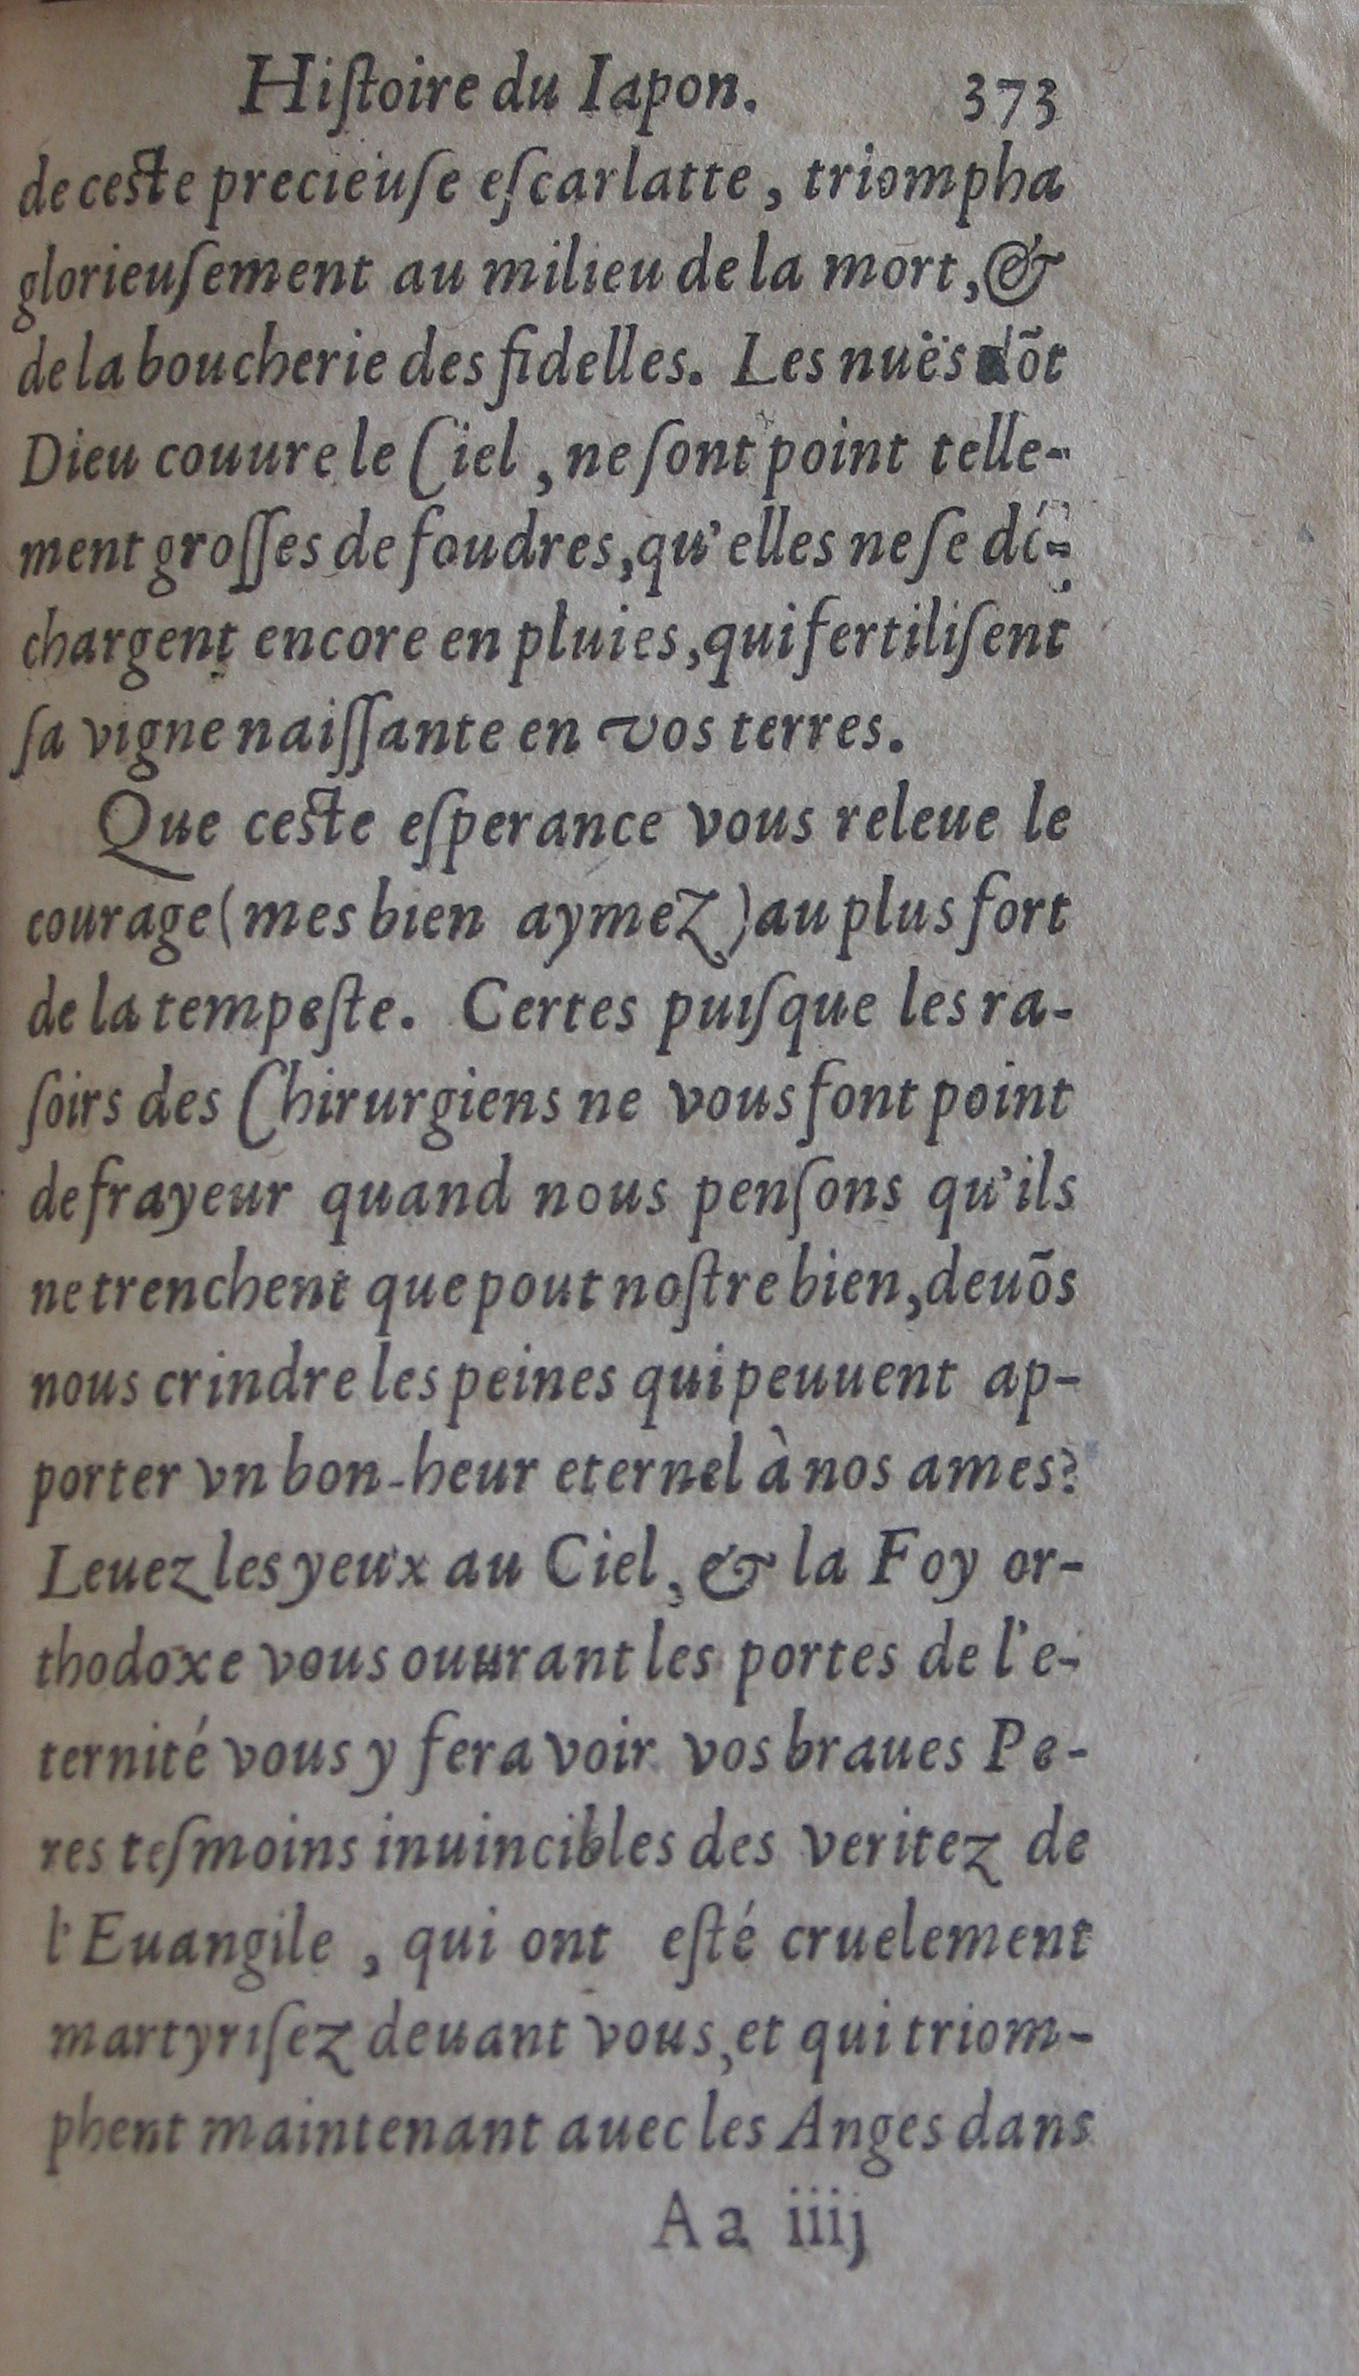 Hiſtoire du Iapon. 373
de ceſte precieuſe eſcarlatte, triompha
glorieuſement au milieu de la mort, &
de la boucherie des fidelles. Les nuës dõt
Dieu couure le Ciel, ne ſont point telle-
ment groſſes de foudres, qu'elles ne ſe dé-
chargent encore en pluies, qui fertiliſent
ſa vigne naiſſante en vos terres.
Que ceſte eſperance vous releue le
courage (mes bien aymez) au plus fort
de la tempeſte. Certes puiſque les ra-
ſoirs des Chirurgiens ne vous font point
de frayeur quand nous penſons qu'ils
ne trenchent que pout noſtre bien, deuõs
nous crindre les peines qui peuuent ap-
porter vn bon-heur eternel à nos ames?
Leuez les yeux au Ciel, & la Foy or-
thodoxe vous ouurant les portes de l'e-
ternité vous y fera voir vos braues Pe-
res teſmoins inuincibles des veritez de
l'Euangile, qui ont eſté cruelement
martyriſez deuant vous, et qui triom-
phent maintenant auec les Anges dans
Aa iiij